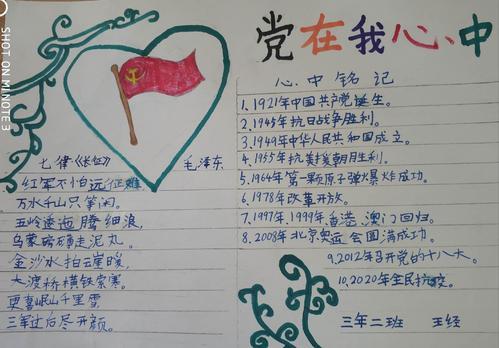 SHOT ON MI NOTE 3
党在我心中
七律《长征》 毛泽东
红军不怕远征难
万水千山只等闲。
五岭逶迤腾细浪,
乌蒙磅礴走泥丸。
金沙水拍云崖暖,
大渡桥横铁索寒。
更喜岷山千里雪
三军过后尽开颜。
心中铭记
1.1921年中国共产党诞生。
2.1945年抗日战争胜利。
3.1949年中华人民共和国成立。
4.1955年抗美援朝胜利。
5.1964年第一颗原子弹爆炸成功。
6.1978年改革开放。
7.1997年、1999年香港、澳门回归。
8.2008年北京奥运会圆满成功。
9.2012年召开党的十八大。
10.2020年全民抗疫。
三年二班 王经